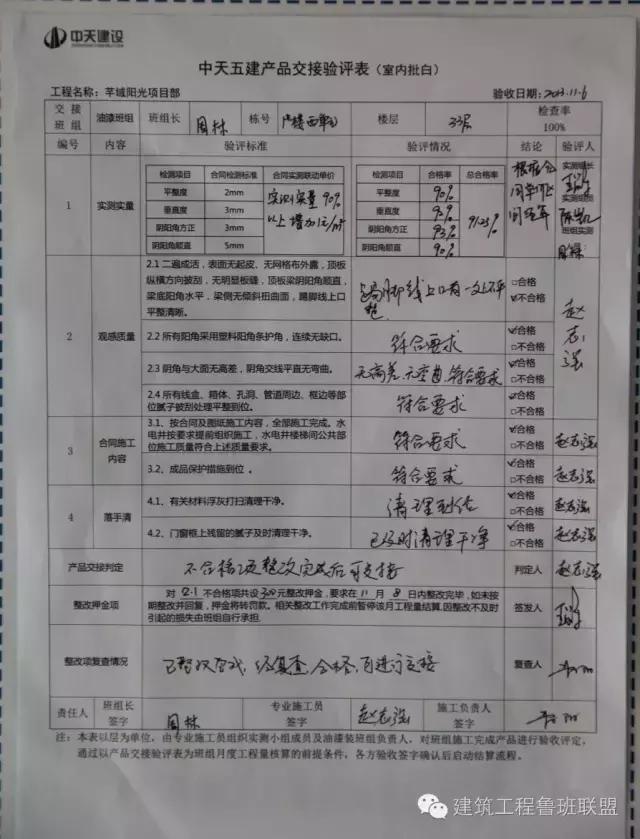 中天建设
中天五建产品交接验评表（室内批白）
工程名称：芊域阳光项目部 验收日期：2013.11.6
交接班组 油漆班组 班组长 周林 栋号 楼层 33层 检查率 100%
编号 内容 验评标准 验评情况 结论 验评人
1 实测实量
检测项目 合同检测标准 合同实测联动单价 检测项目 合格率 总合格率
平整度 2mm 平整度 90%
垂直度 3mm 垂直度
阴阳角方正 3mm 阴阳角方正 93%
阴阳角顺直 5mm 阴阳角顺直 90%
实测实量90%
以上增加1元/m²
实测组长
实测组员
班组实测
周林
2 观感质量
2.1 二遍成活，表面无起皮、无网格布外露，顶板
纵横方向披刮，无明显板缝，顶板梁阴阳角顺直，
梁底阳角水平，梁侧无倾斜扭曲面，踢脚线上口
平整清晰。
踢脚线上口有一
□合格
☑不合格
赵志强
2.2 所有阳角采用塑料阳角条护角，连续无缺口。
符合要求
☑合格
□不合格
2.3 阴角与大面无高差，阴角交线平直无弯曲。
无高差、无弯曲，符合要求
☑合格
□不合格
2.4 所有线盒、箱体、孔洞、管道周边、框边等部
位腻子披刮处理平整到位。
符合要求
☑合格
□不合格
3 合同施工内容
3.1、按合同及图纸施工内容，全部施工完成。水
电井按要求提前组织施工，水电井楼梯间公共部
位施工质量符合上述质量要求。
符合要求
☑合格
□不合格
赵志强
3.2、成品保护措施到位 。
符合要求
☑合格
□不合格
赵志强
4 落手清
4.1、有关材料浮灰打扫清理干净。
清理到位
☑合格
□不合格
赵志强
4.2、门窗框上残留的腻子及时清理干净。
已及时清理干净
☑合格
□不合格
赵志强
产品交接判定 不合格项整改完成后可交接 判定人 赵志强
整改押金项
对 2.1 不合格项共设300元整改押金，要求在 11 月 8 日内整改完毕，如未按
期整改并回复，押金将转罚款。相关整改工作完成前暂停该月工程量结算,因整改不及时
引起的损失由班组自行承担.
签发人
整改项复查情况 已整改合格，经复查，合格，可进行交接 复查人
责任人 班组长签字 周林 专业施工员签字 赵志强 施工负责人签字
注：本表以层为单位，由专业施工员组织实测小组成员及油漆装班组负责人，对班组施工完成产品进行验收评定，
通过以产品交接验评表为班组月度工程量核算的前提条件，各方验收签字确认后启动结算流程。
建筑工程鲁班联盟